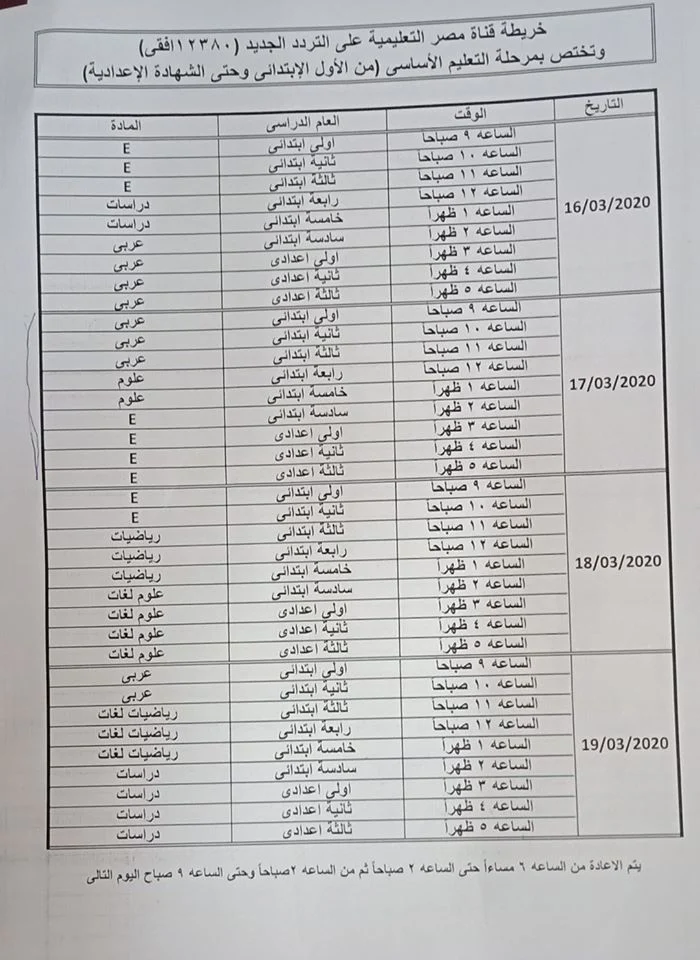 خريطة قناة مصر التعليمية على التردد الجديد (١٢٣٨٠افقى)
وتختص بمرحلة التعليم الأساسى (من الأول الإبتدائى وحتى الشهادة الإعدادية)
التاريخ الوقت العام الدراسى المادة
16/03/2020
الساعه ٩ صباحا اولى ابتدائى E
الساعه ١٠ صباحا ثانية ابتدائى E
الساعه ١١ صباحا ثالثة ابتدائى E
الساعه ١٢ صباحا رابعة ابتدائى دراسات
الساعه ١ ظهرا خامسة ابتدائى دراسات
الساعه ٢ ظهرا سادسة ابتدائى عربى
الساعه ٣ ظهرا اولى اعدادى عربى
الساعه ٤ ظهرا ثانية اعدادى عربى
الساعه ٥ ظهرا ثالثة اعدادى عربى
17/03/2020
الساعه ٩ صباحا اولى ابتدائى عربى
الساعه ١٠ صباحا ثانية ابتدائى عربى
الساعه ١١ صباحا ثالثة ابتدائى عربى
الساعه ١٢ صباحا رابعة ابتدائى علوم
الساعه ١ ظهرا خامسة ابتدائى علوم
الساعه ٢ ظهرا سادسة ابتدائى E
الساعه ٣ ظهرا اولى اعدادى E
الساعه ٤ ظهرا ثانية اعدادى E
الساعه ٥ ظهرا ثالثة اعدادى E
18/03/2020
الساعه ٩ صباحا اولى ابتدائى E
الساعه ١٠ صباحا ثانية ابتدائى E
الساعه ١١ صباحا ثالثة ابتدائى رياضيات
الساعه ١٢ صباحا رابعة ابتدائى رياضيات
الساعه ١ ظهرا خامسة ابتدائى رياضيات
الساعه ٢ ظهرا سادسة ابتدائى علوم لغات
الساعه ٣ ظهرا اولى اعدادى علوم لغات
الساعه ٤ ظهرا ثانية اعدادى علوم لغات
الساعه ٥ ظهرا ثالثة اعدادى علوم لغات
19/03/2020
الساعه ٩ صباحا اولى ابتدائى عربى
الساعه ١٠ صباحا ثانية ابتدائى عربى
الساعه ١١ صباحا ثالثة ابتدائى رياضيات لغات
الساعه ١٢ صباحا رابعة ابتدائى رياضيات لغات
الساعه ١ ظهرا خامسة ابتدائى رياضيات لغات
الساعه ٢ ظهرا سادسة ابتدائى دراسات
الساعه ٣ ظهرا اولى اعدادى دراسات
الساعه ٤ ظهرا ثانية اعدادى دراسات
الساعه ٥ ظهرا ثالثة اعدادى دراسات
يتم الاعادة من الساعه ٦ مساءأ حتى الساعه ٢ صباحأ ثم من الساعه ٢صباحأ وحتى الساعه ٩ صباح اليوم التالى